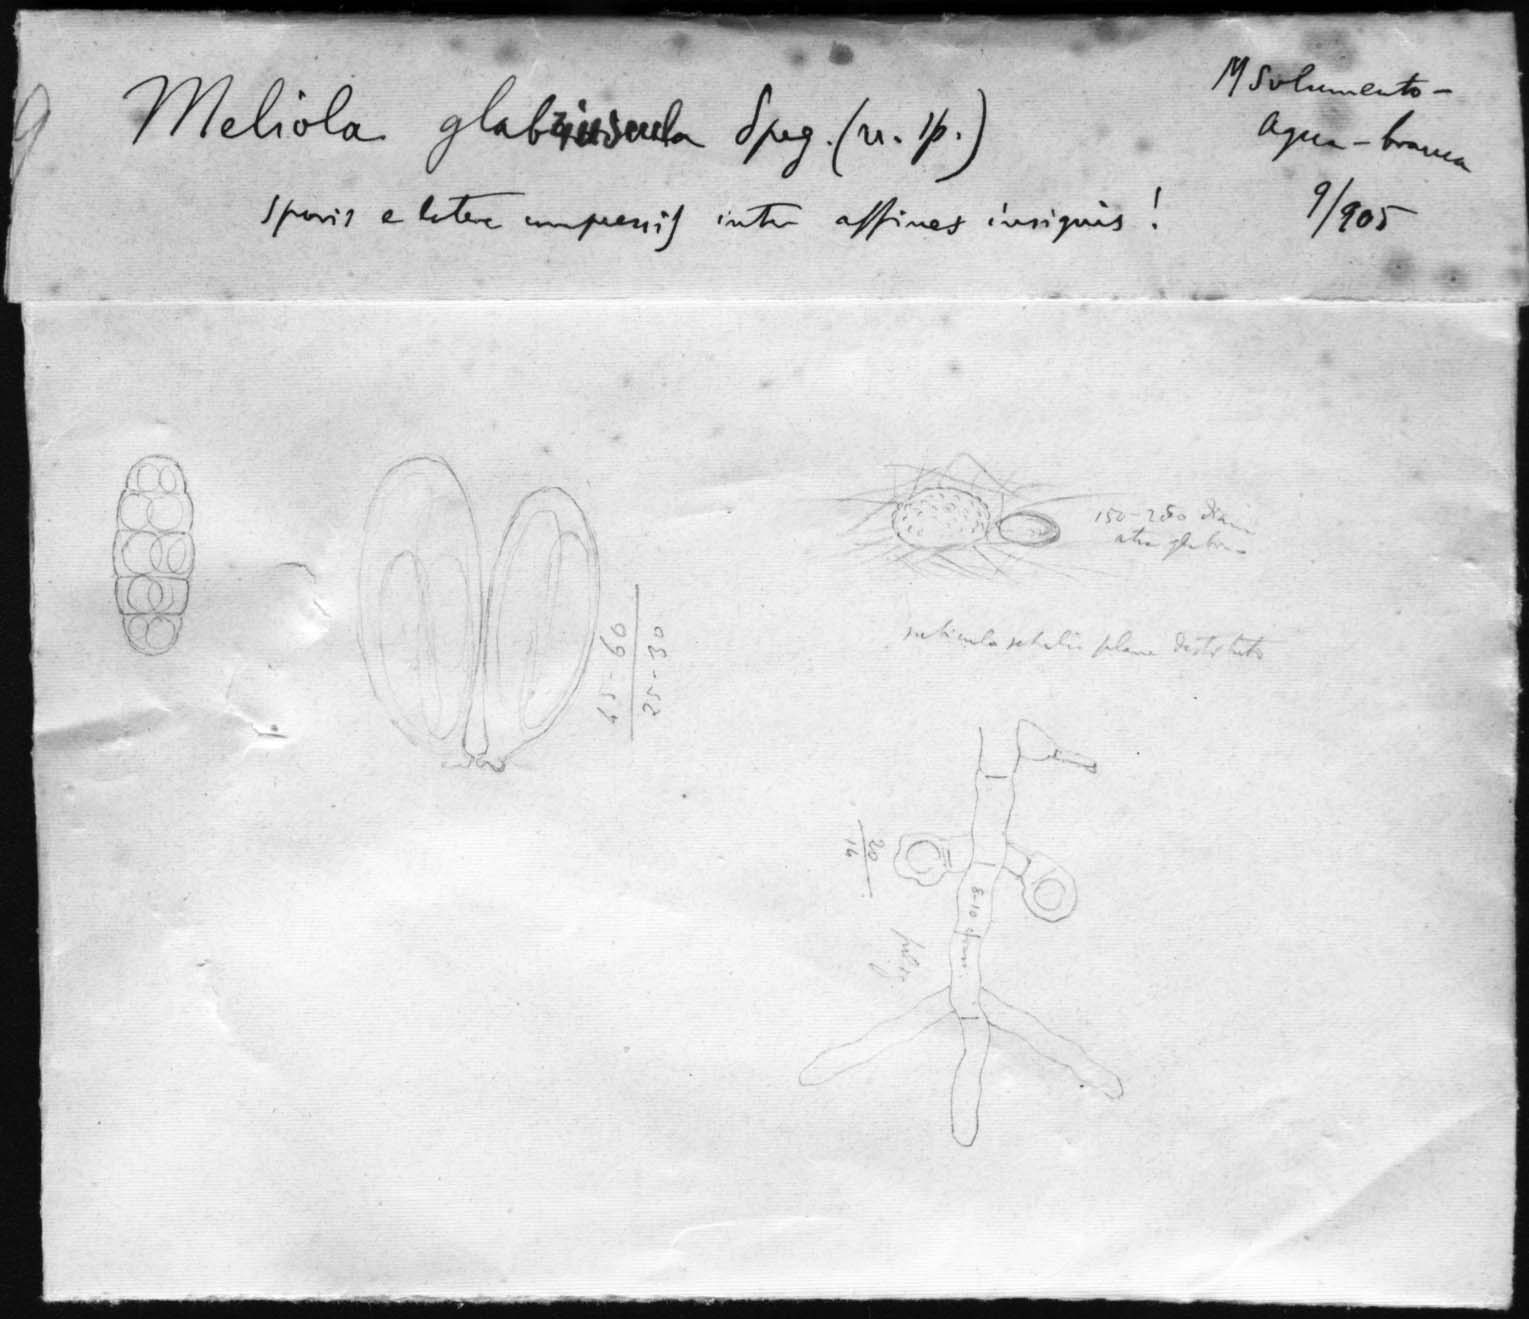 9
Meliola glabriuscula Speg. (n. sp.)
sporis e latere compressis inter affines insignis!
Agua-branca
9/905
150-250 diam
atra glabra
subicula setulis plane destituta
45-60
25-30
20
16
8-10